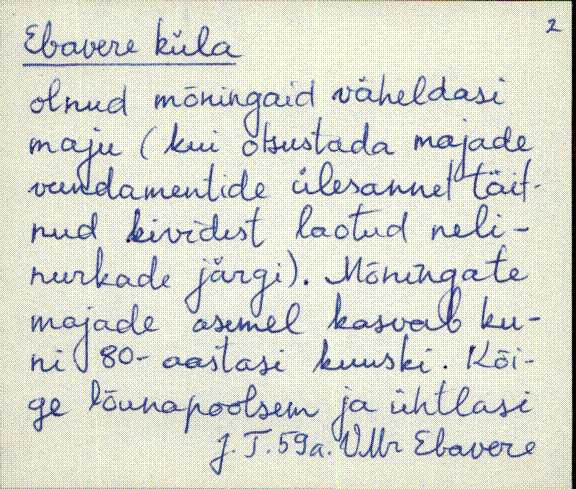 2
Ebavere küla
olnud mõningaid väheldasi
maju (kui otsustada majade
vundamentide ülesannet täit-
nud kividest laotud neli-
nurkade järgi). Mõningate
majade asemel kasvab ku-
ni 80-aastasi kuuski. Kõi-
ge lõunapoolsem ja ühtlasi
J. T. 59a. VMr Ebavere